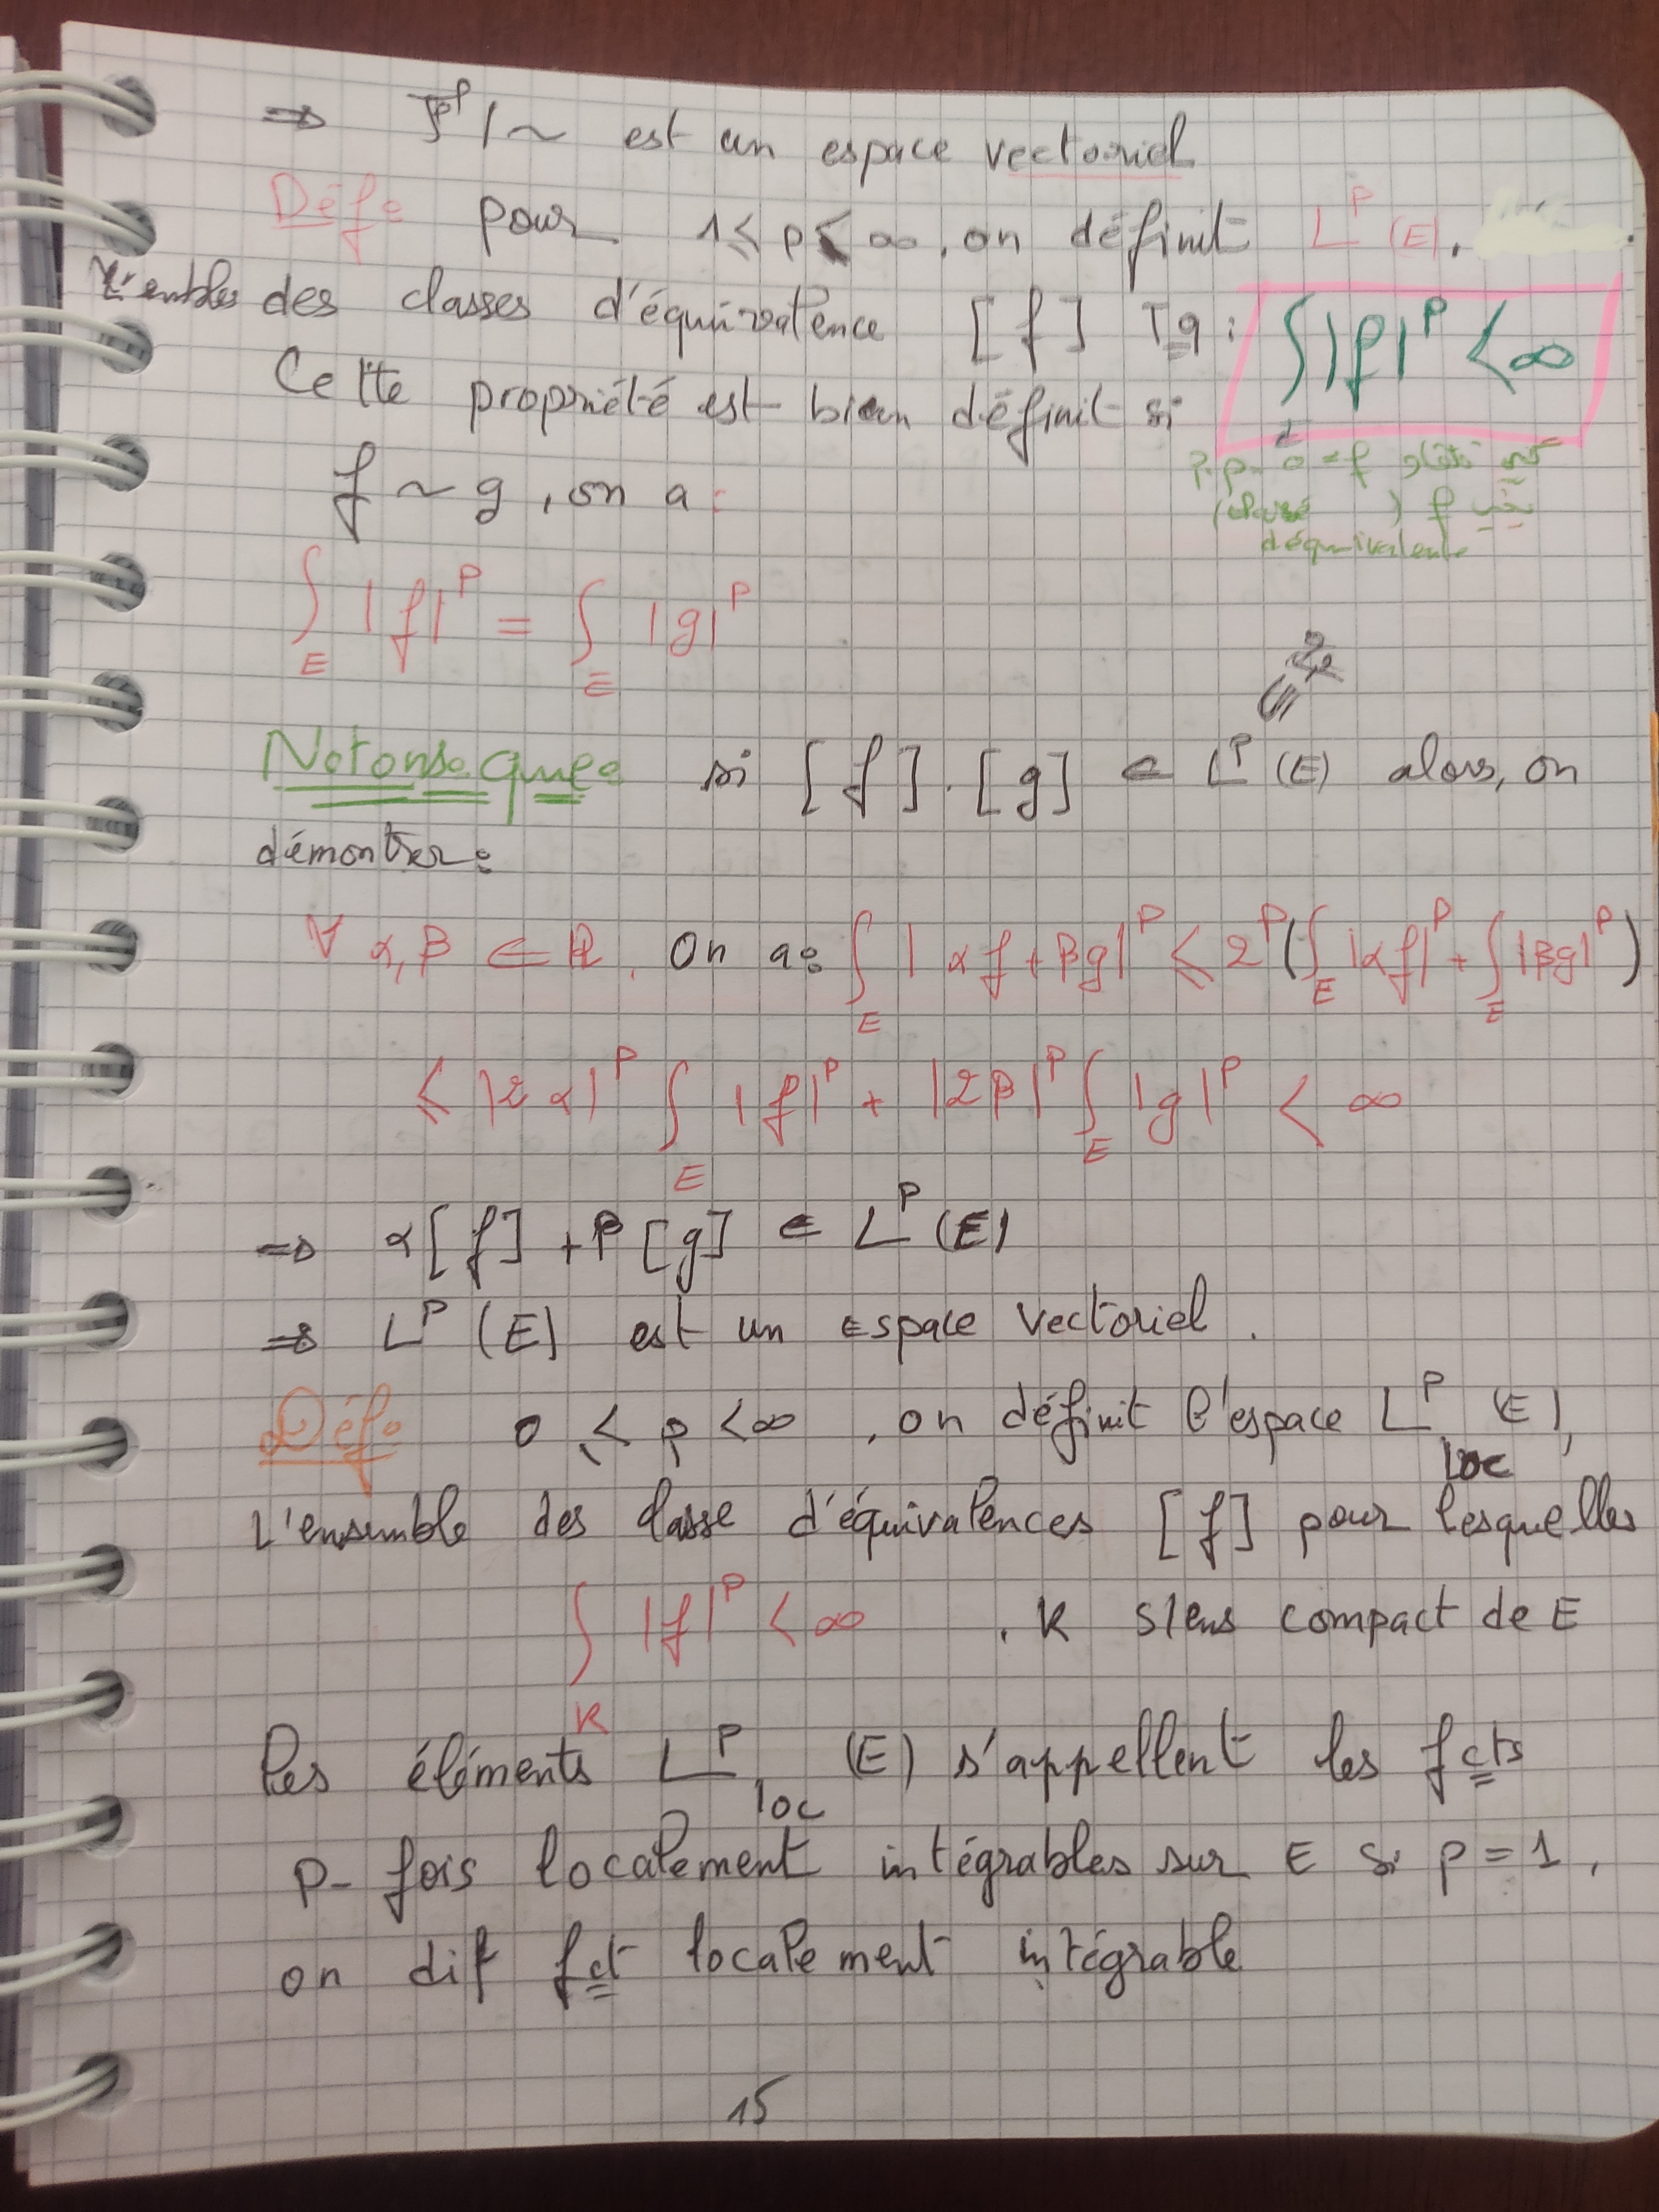 ⇒ F^p / ~ est un espace vectoriel
Déf: pour 1 ≤ p < ∞, on définit L^p (E).
des classes d'équivalence [f] Tq: ∫_E |f|^p < ∞
Cette propriété est bien définit si
p.p. 0 = f
f
d'équivalente
f ~ g, on a:
∫_E |f|^p = ∫_E |g|^p
Notons que: si [f]. [g] ∈ L^p (E) alors, on
démontrer:
∀ α, β ∈ ℝ. On a: ∫_E |αf + βg|^p ≤ 2^p (∫_E |αf|^p + ∫_E |βg|^p)
≤ |2α|^p ∫_E |f|^p + |2β|^p ∫_E |g|^p < ∞
⇒ α[f] + β[g] ∈ L^p (E)
⇒ L^p (E) est un espace vectoriel.
Déf: 0 ≤ p < ∞, on définit l'espace L^p_loc (E),
L'ensemble des classe d'équivalences [f] pour lesquelles
∫_K |f|^p < ∞ . K s/ens compact de E
les éléments L^p_loc (E) s'appellent les fcts
p- fois localement intégrables sur E si p = 1,
on dit fct localement intégrable
15